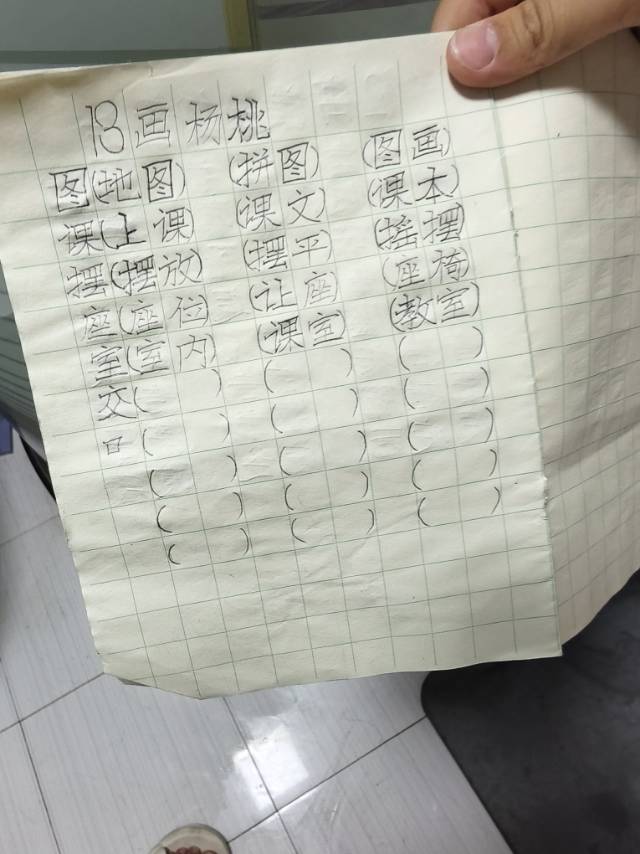 18画杨桃
图(地图) (拼图) (图画)
课(上课) (课文) (课本)
摆(摆放) (摆平) (摇摆)
座(座位) (让座) (座椅)
室(室内) (课室) (教室)
交( ) ( ) ( )
口( ) ( ) ( )
( ) ( ) ( )
( ) ( ) ( )
( ) ( ) ( )